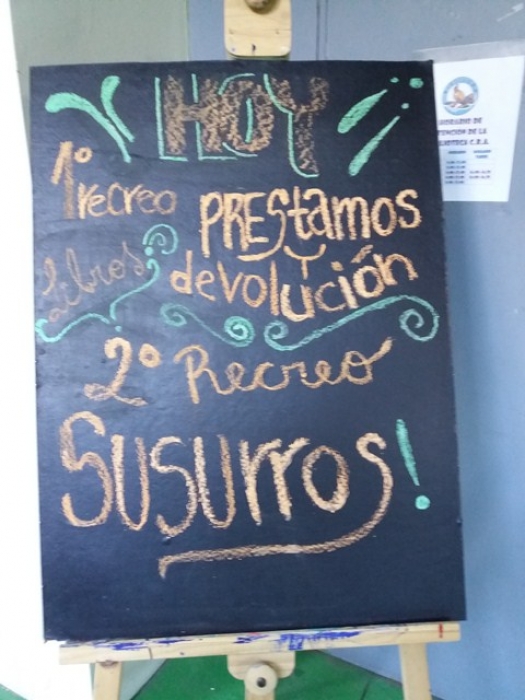 HOY
1º recreo
PREStamos
Y
Libros
devolución
2º Recreo
Susurros!
HORARIO DE
ATENCION DE LA
BIBLIOTECA C.R.A.